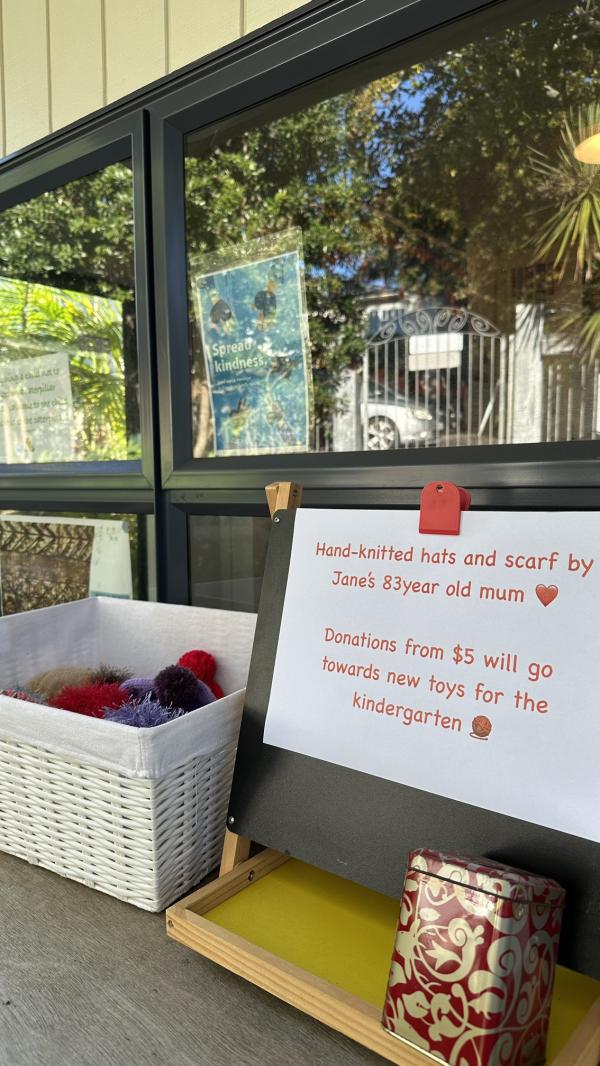 Spread
kindness.
Hand-knitted hats and scarf by
Jane's 83year old mum ❤️
Donations from $5 will go
towards new toys for the
kindergarten 🧶